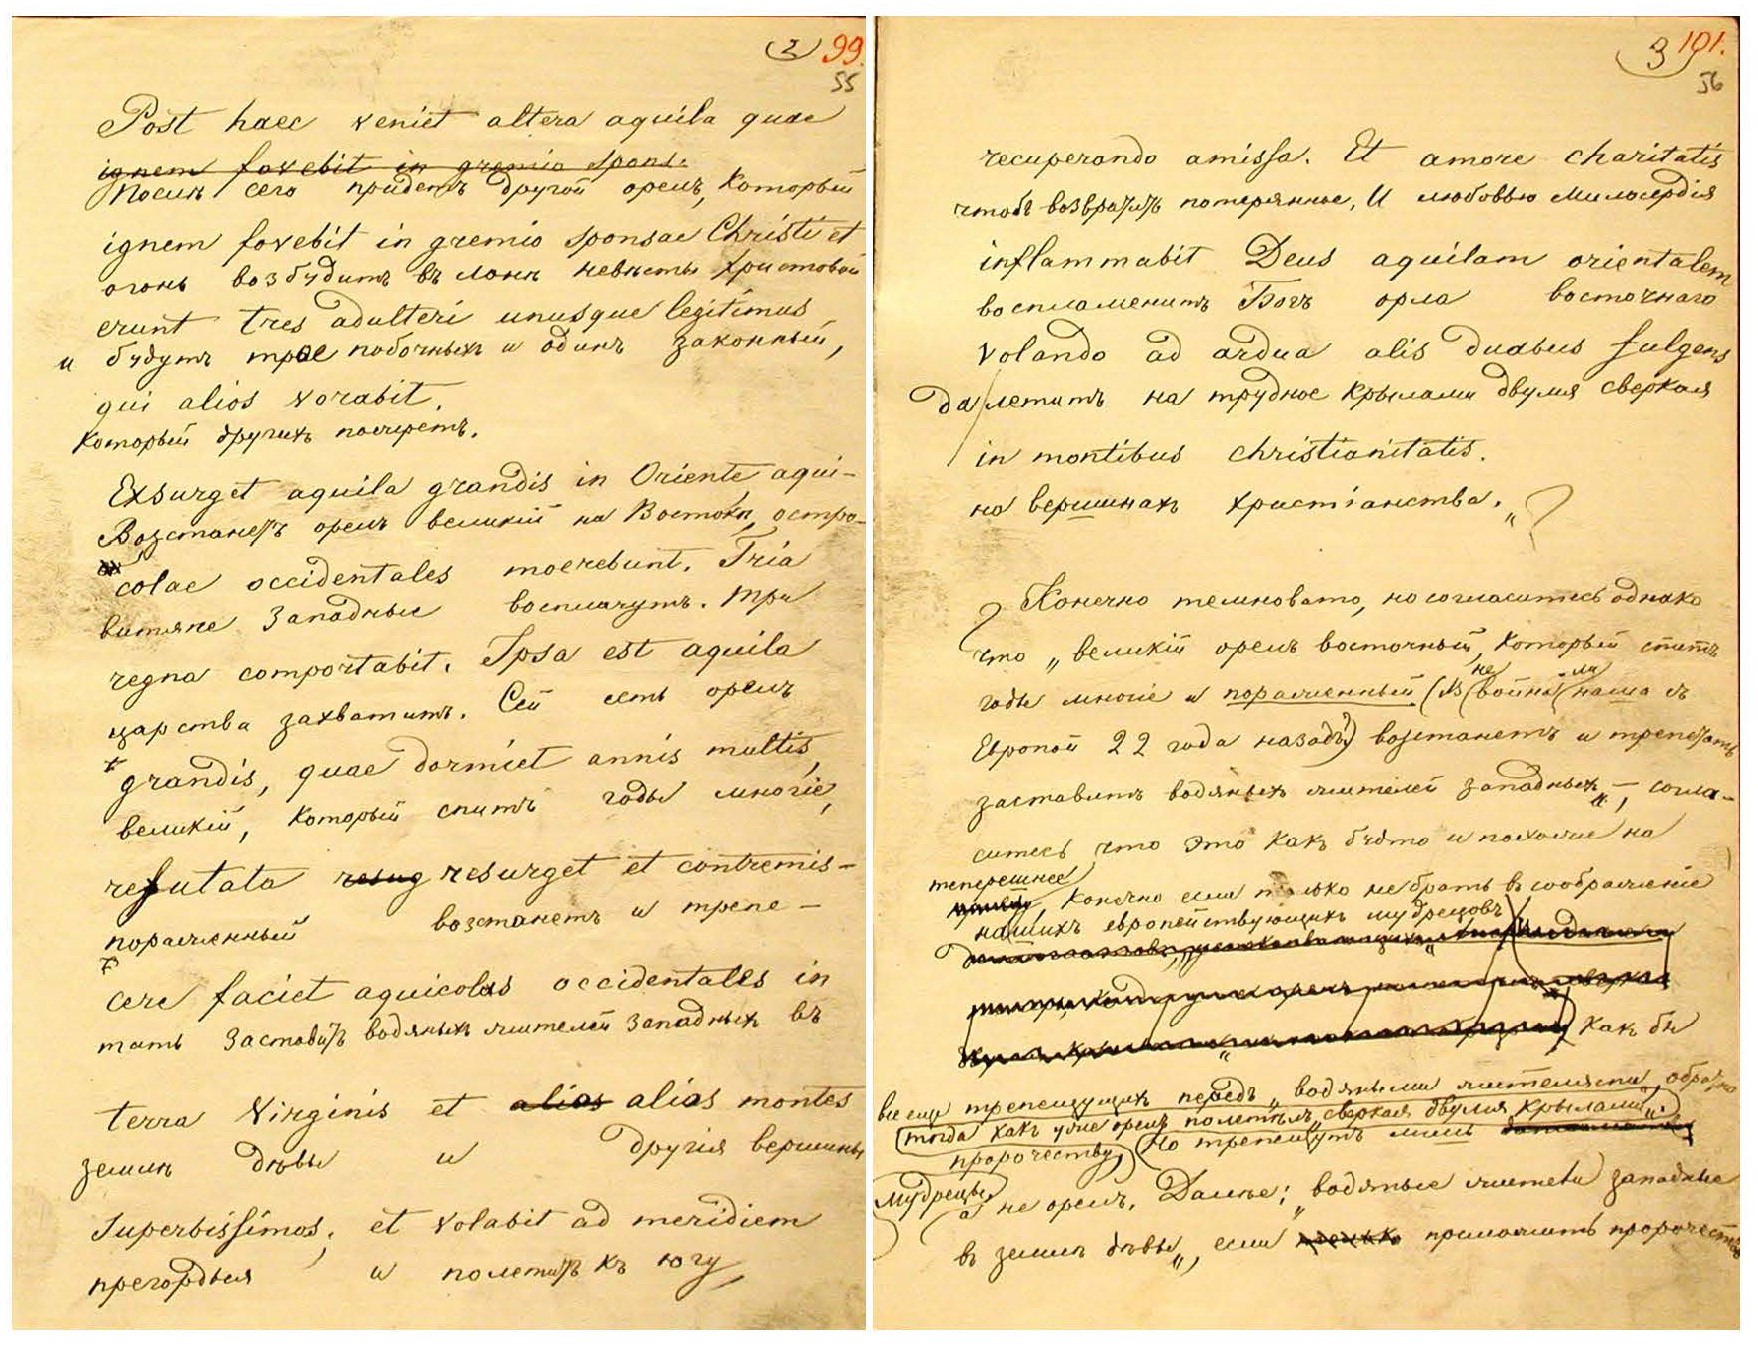 2 99.
55
Post haec veniet altera aquila quae
ignem fovebit in gremio spons.
Послѣ сего придетъ другой орелъ, который
ignem fovebit in gremio sponsae Christi et
огонь возбудитъ въ лонѣ невѣсты Христовой
erunt tres adulteri unusque legitimus
и будутъ трое побочныхъ и одинъ законный,
qui alios vorabit.
который другихъ пожретъ.
Exsurget aquila grandis in Oriente, aqui-
Возстанетъ орелъ великій на Востокѣ, остро-
colae occidentales moerebunt. Tria
витяне западные восплачутъ. Три
regna comportabit. Ipsa est aquila
царства захватитъ. Сей есть орелъ
grandis, quae dormiet annis multis,
великій, который спитъ годы многіе,
refutata resug resurget et contremis-
пораженный возстанетъ и трепе-
cere faciet aquicolas occidentales in
тать заставитъ водяныхъ жителей западныхъ въ
terra Virginis et alios alios montes
землѣ дѣвы и другія вершины
superbissimos; et volabit ad meridiem
прегордыя и полетитъ къ югу,
3 101.
56
recuperando amissa. Et amore charitatis
чтобъ возвратить потерянное, И любовью милосердія
inflammabit Deus aquilam orientalem
воспламенитъ Богъ орла восточнаго
volando ad ardua alis duabus fulgens
да летитъ на трудное крылами двумя сверкая
in montibus christianitatis.
на вершинахъ христіанства."
Конечно темновато, но согласитесь однако
что „великій орелъ восточный, который спитъ
годы многіе и пораженный (не война ли наша съ
Европой 22 года назадъ?) возстанетъ и трепетать
заставитъ водяныхъ жителей западныхъ„ —, согла-
ситесь что это какъ будто и похоже на
теперешнее
Конечно если только не брать въ соображеніе
нашихъ европействующихъ мудрецовъ
какъ бы
все еще трепещущихъ передъ „водяными жителями, обратно
тогда какъ уже орелъ полетѣлъ „сверкая двумя крылами".
пророчеству, Но трепещутъ лишь
мудрецы
а не орелъ. Далѣе: „водяные жители западные
въ землѣ дѣвы„, если приложить пророчество